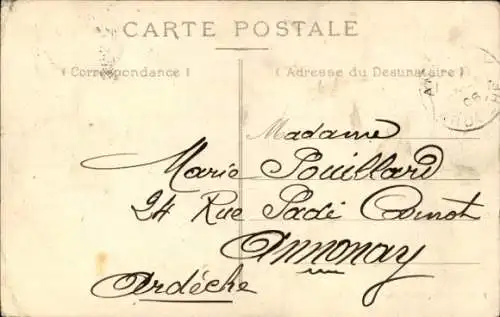 CARTE POSTALE
(Correspondance) (Adresse du Destinataire)
Madame
Marie Pouillard
24 Rue Sadi Carnot
Annonay
Ardèche